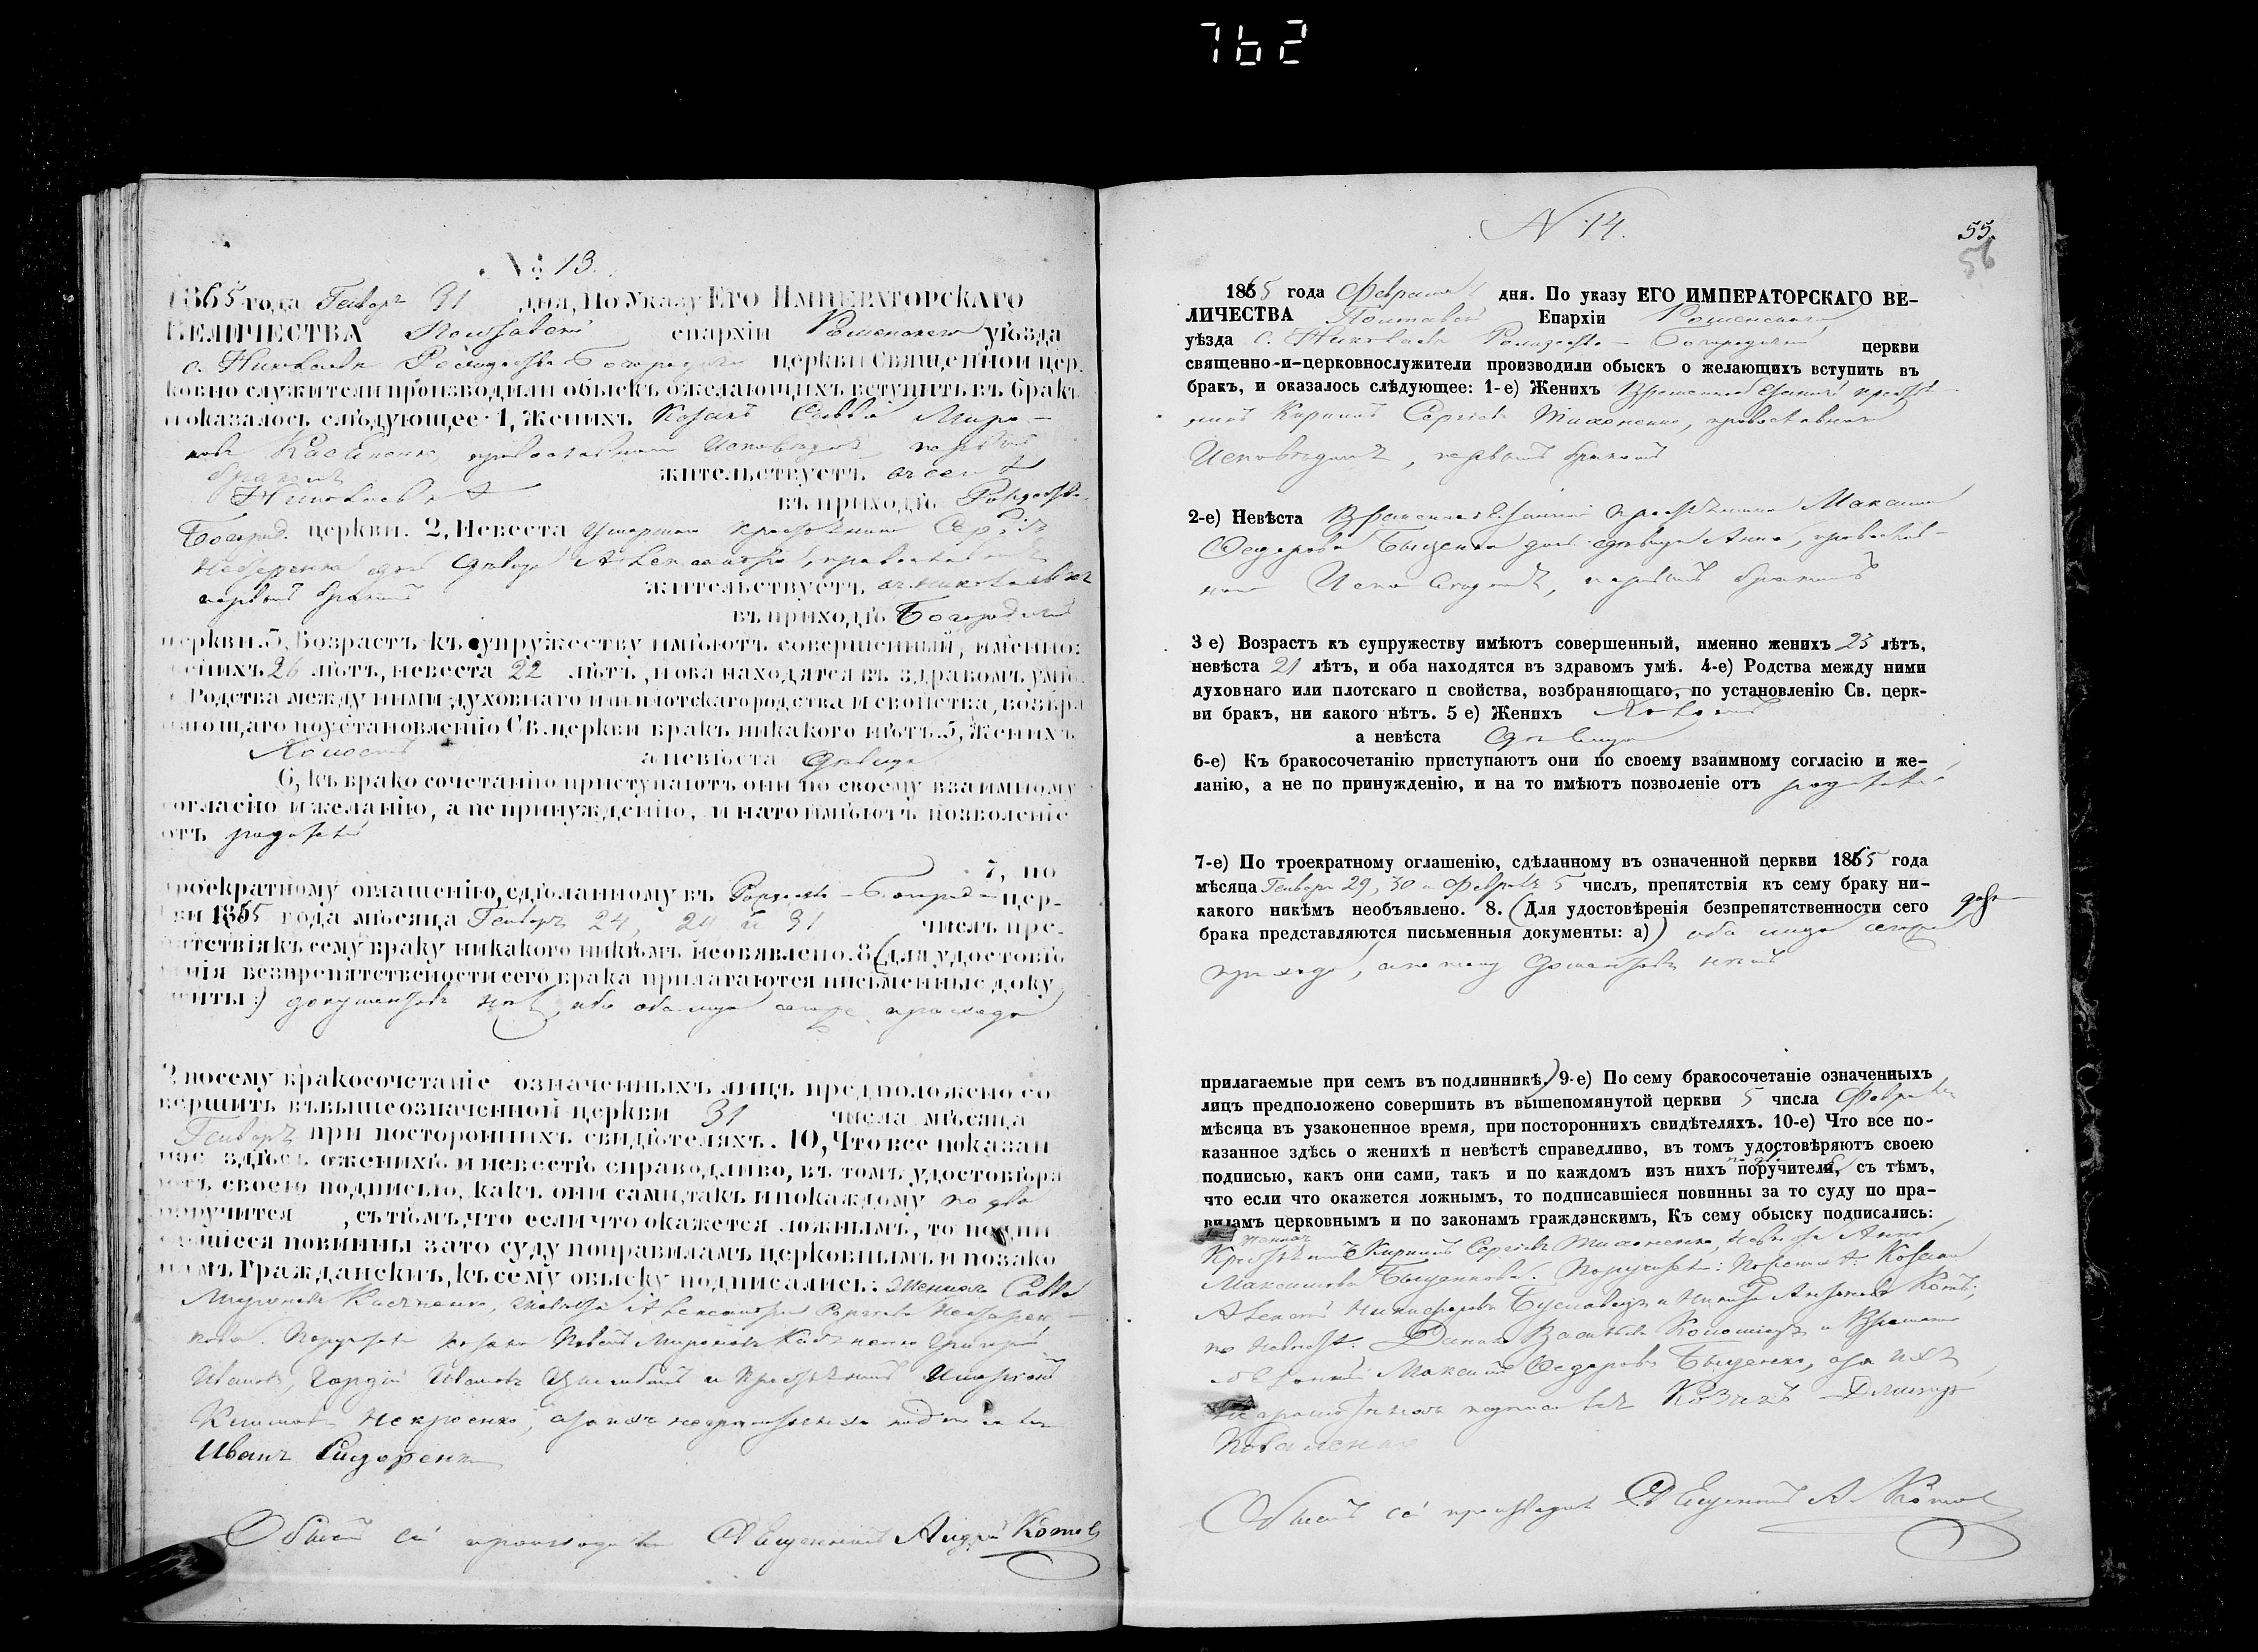 762
№ 13.
1865 года Генвар 31 дня, По Указу Его Императорскаго
Величества Полтавской епархіи Роменскаго уѣзда
с. Николаевки Рождество-Богородич церкви Священной цер.
ковно служители производили обыскъ о желающихъ вступить въ бракъ
и оказалось слѣдующее 1, Женихъ Козакъ Савва Миро-
новъ православнаго исповѣданія первымъ
бракомъ жительствуетъ въ селѣ
Николаевкѣ въ приходѣ Рождество-
Богород. церкви. 2, Невеста умершаго крестьянина Сергѣя
дочь дѣвица Александра, православнаго
первымъ бракомъ жительствуетъ въ Николаевкѣ
въ приходѣ Богородич
церкви. 3, Возрастъ къ супружеству имѣютъ совершенный, именно:
женихъ 26 лѣтъ, невеста 22 лѣтъ, и оба находятся въ здравомъ умѣ.
Родства между ними духовнаго или плотскаго родства и свойства, возбра
няющаго по установленію Св. церкви бракъ никакого нѣтъ. 5, Женихъ
Холостъ а невѣста дѣвица
6, къ брако сочетанію приступаютъ они по своему взаимному
согласію и желанію, а не принужденію, и на то имѣютъ позволеніе
отъ родителей
7, по
троекратному оглашенію, сдѣланному въ Рождество-Богород цер-
кви 1865 года мѣсяца Генваря 24, и 31 числъ пре-
пятствія къ сему браку никакого никѣмъ необявлено. 8 (для удостовѣ
ренія безпрепятствености сего брака прилагаются письменные доку
менты:) документовъ нѣтъ, ибо оба лица сего прихода
9 посему бракосочетаніе означенныхъ лицъ предположено со
вершить въ вышеозначенной церкви 31 числа мѣсяца
Генваря при посторонныхъ свидѣтеляхъ. 10, Что все показан
ное здѣсь о женихѣ и невестѣ справодливо, въ томъ удостовѣря
ютъ своею подписью, какъ они сами, такъ и по каждому по два
поручителя, съ тѣмъ, что если что окажется ложнымъ, то подпи
савшіеся повинны за то суду по правиламъ церковнымъ и по зако
намъ Гражданскимъ, къ сему обыску подписались: Женихъ Савва
Мироновъ невѣста Александра Сергѣева
Поручители козаки Павелъ Мироновъ Григорій
Ивановъ, Гордій Ивановъ и крестьянинъ
Климовъ а за ихъ неграмотныхъ подписался
Иванъ Сидоренко
Обыскъ сей производилъ Священникъ Андрей Котов
N 14.
55.
56
1865 года Февраля дня. По указу ЕГО ИМПЕРАТОРСКАГО ВЕ-
ЛИЧЕСТВА Полтавской Епархіи Роменскаго
уѣзда С. Николаевки Рождество-Богородичной церкви
священно-и-церковнослужители производили обыскъ о желающихъ вступить въ
бракъ, и оказалось слѣдующее: 1-е) Женихъ Временнообязанный крестья-
нинъ Кирилъ Сергѣевъ Тихоненко, православнаго
Исповѣданія, первымъ бракомъ
2-е) Невѣста Временнообязаннаго крестьянина Максима
Федорова Быценка дочь дѣвица Анна, православ-
наго Исповѣданія, первымъ бракомъ
3 е) Возрастъ къ супружеству имѣютъ совершенный, именно женихъ 23 лѣтъ,
невѣста 21 лѣтъ, и оба находятся въ здравомъ умѣ. 4-е) Родства между ними
духовнаго или плотскаго п свойства, возбраняющаго, по установленію Св. церк-
ви бракъ, ни какого нѣтъ. 5 е) Женихъ Холостъ
а невѣста дѣвица
6-е) Къ бракосочетанію приступаютъ они по своему взаимному согласію и же-
ланію, а не по принужденію, и на то имѣютъ позволеніе отъ родителей
7-е) По троекратному оглашенію, сдѣланному въ означенной церкви 1865 года
мѣсяца Генваря 29, 30 и Февраля 5 числъ, препятствія къ сему браку ни-
какого никѣмъ необъявлено. 8. (Для удостовѣренія безпрепятственности сего
брака представляются письменныя документы: а)) оба лица сего
прихода, а по тому документовъ нѣтъ
прилагаемые при семъ въ подлинникѣ.) 9-е) По сему бракосочетаніе означенныхъ
лицъ предположено совершить въ вышепомянутой церкви 5 числа Февраля
мѣсяца въ узаконенное время, при постороннихъ свидѣтеляхъ. 10-е) Что все по-
казанное здѣсь о женихѣ п невѣстѣ справедливо, въ томъ удостовѣряютъ своею
подписью, какъ они сами, такъ и по каждомъ изъ нихъ поручителя, съ тѣмъ,
что если что окажется ложнымъ, то подписавшіеся повинны за то суду по пра-
виламъ церковнымъ и по законамъ гражданскимъ, Къ сему обыску подписались:
женихъ
Крестьянинъ Кирилъ Сергѣевъ Тихоненко, невѣста Анна
Максимова Быценкова. Поручители: По женихѣ: Козаки
Алексѣй Никифоровъ и Никита Котъ;
по невѣстѣ: Данило Васильевъ Коломіецъ и Временно
обязанный Максимъ Федоровъ Быценко, а за ихъ
неграмотныхъ подписался Козакъ
Коваленко
Обыскъ сей производилъ Священникъ А. Котов